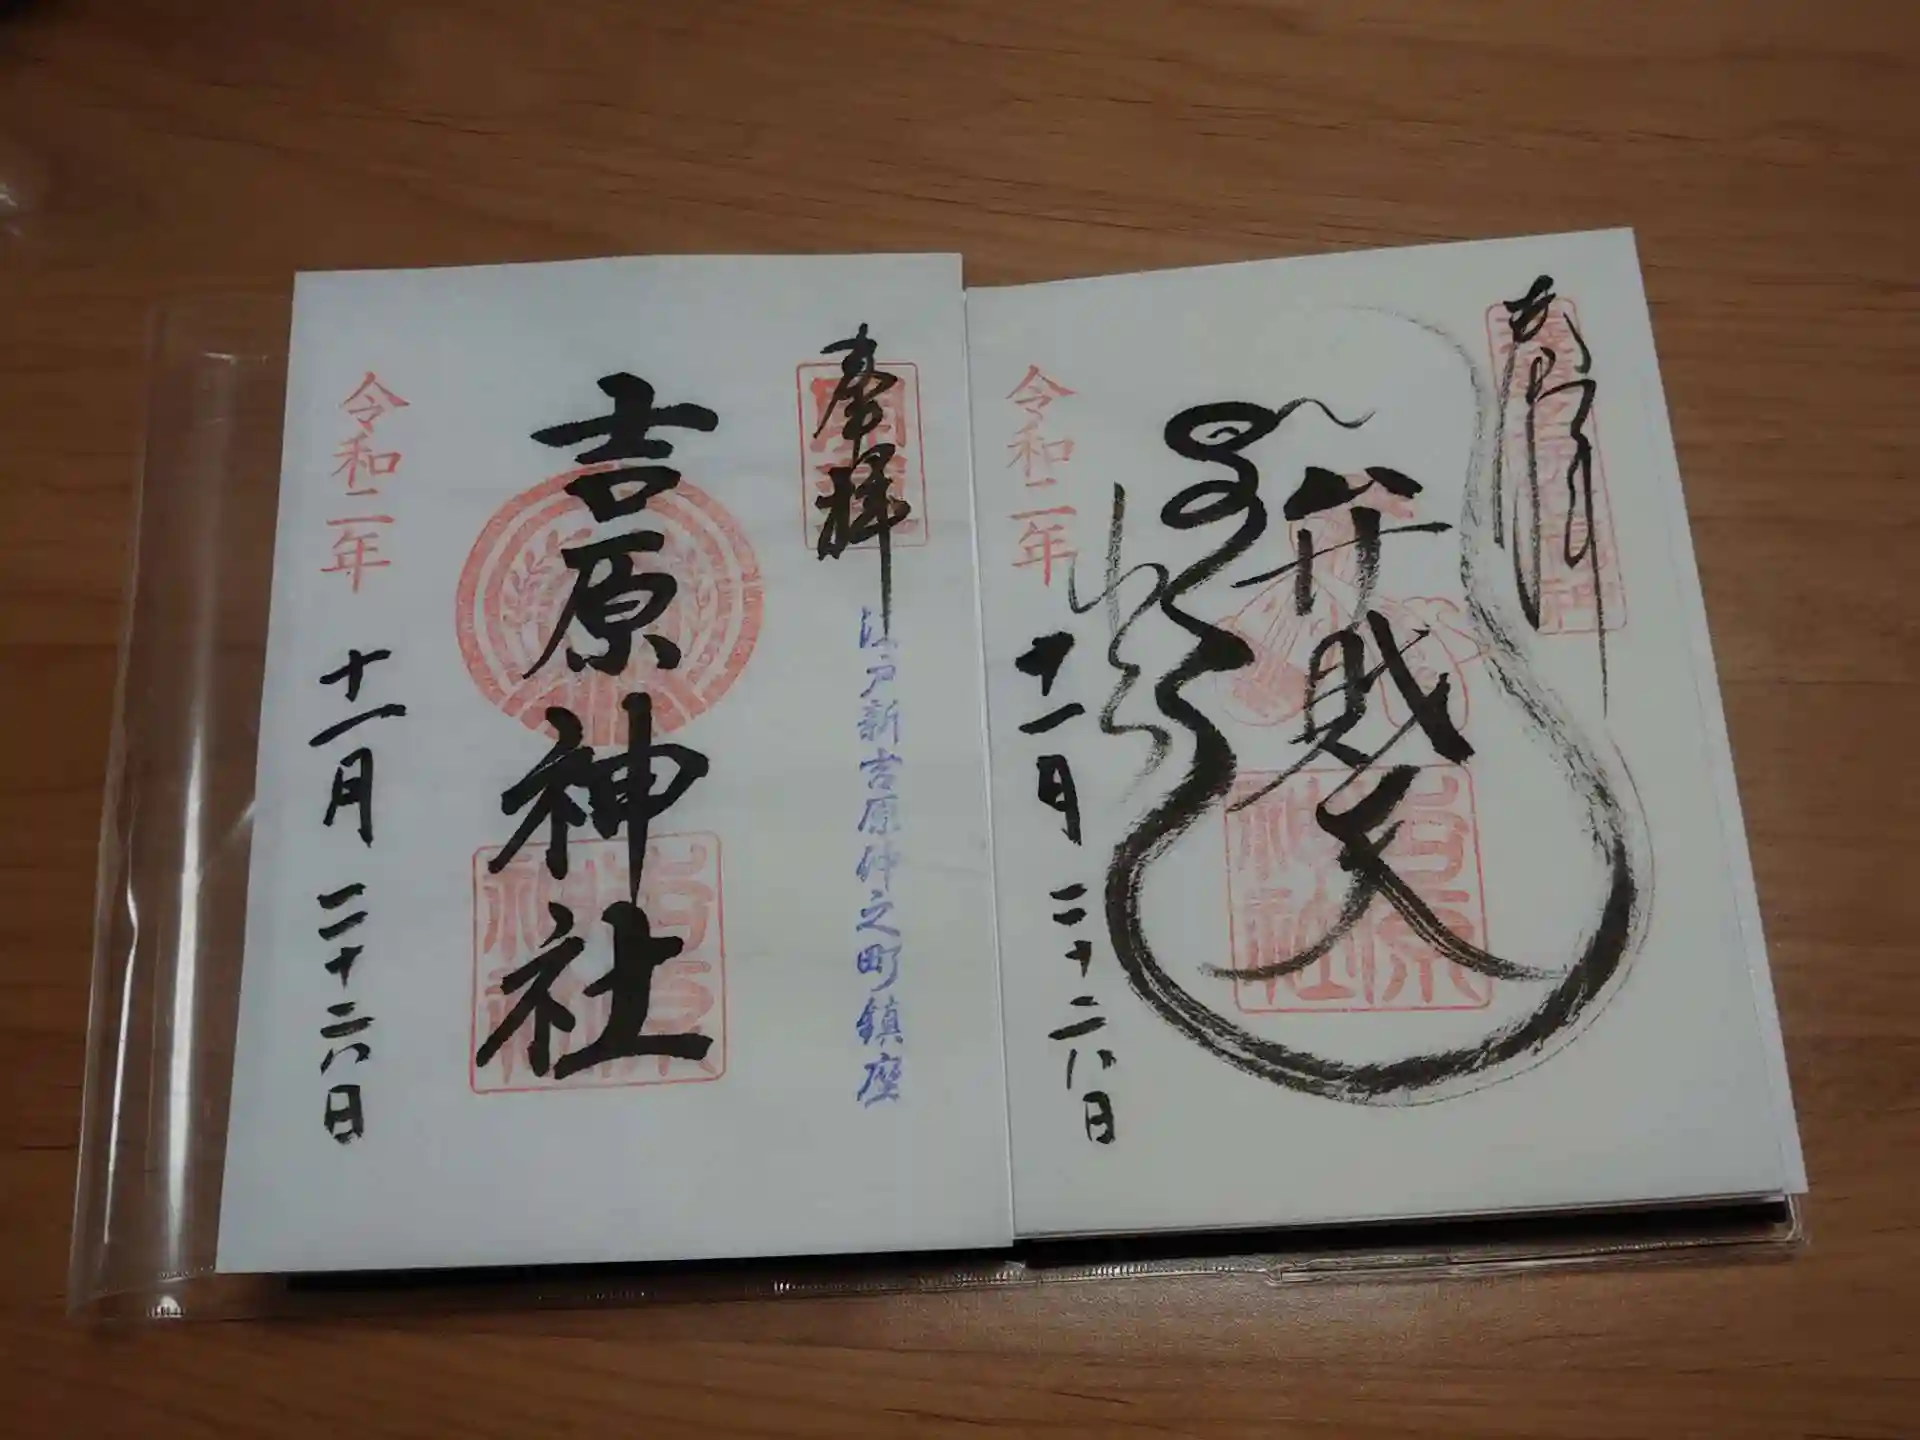 奉拝
弁財天
令和二年
十一月二十六日
奉拝
江戸新吉原仲之町鎮座
吉原神社
吉原神社
令和二年
十一月二十六日